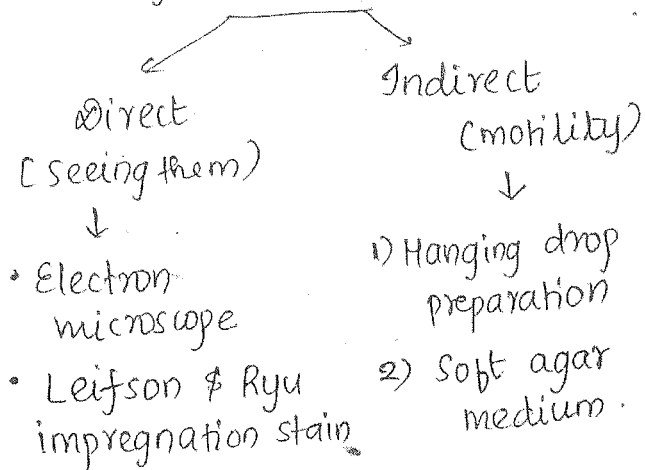 Direct
[seeing them)
↓
• Electron
microscope
• Leifson & Ryu
impregnation stain
Indirect
(motility)
↓
1) Hanging drop
preparation
2) Soft agar
medium.